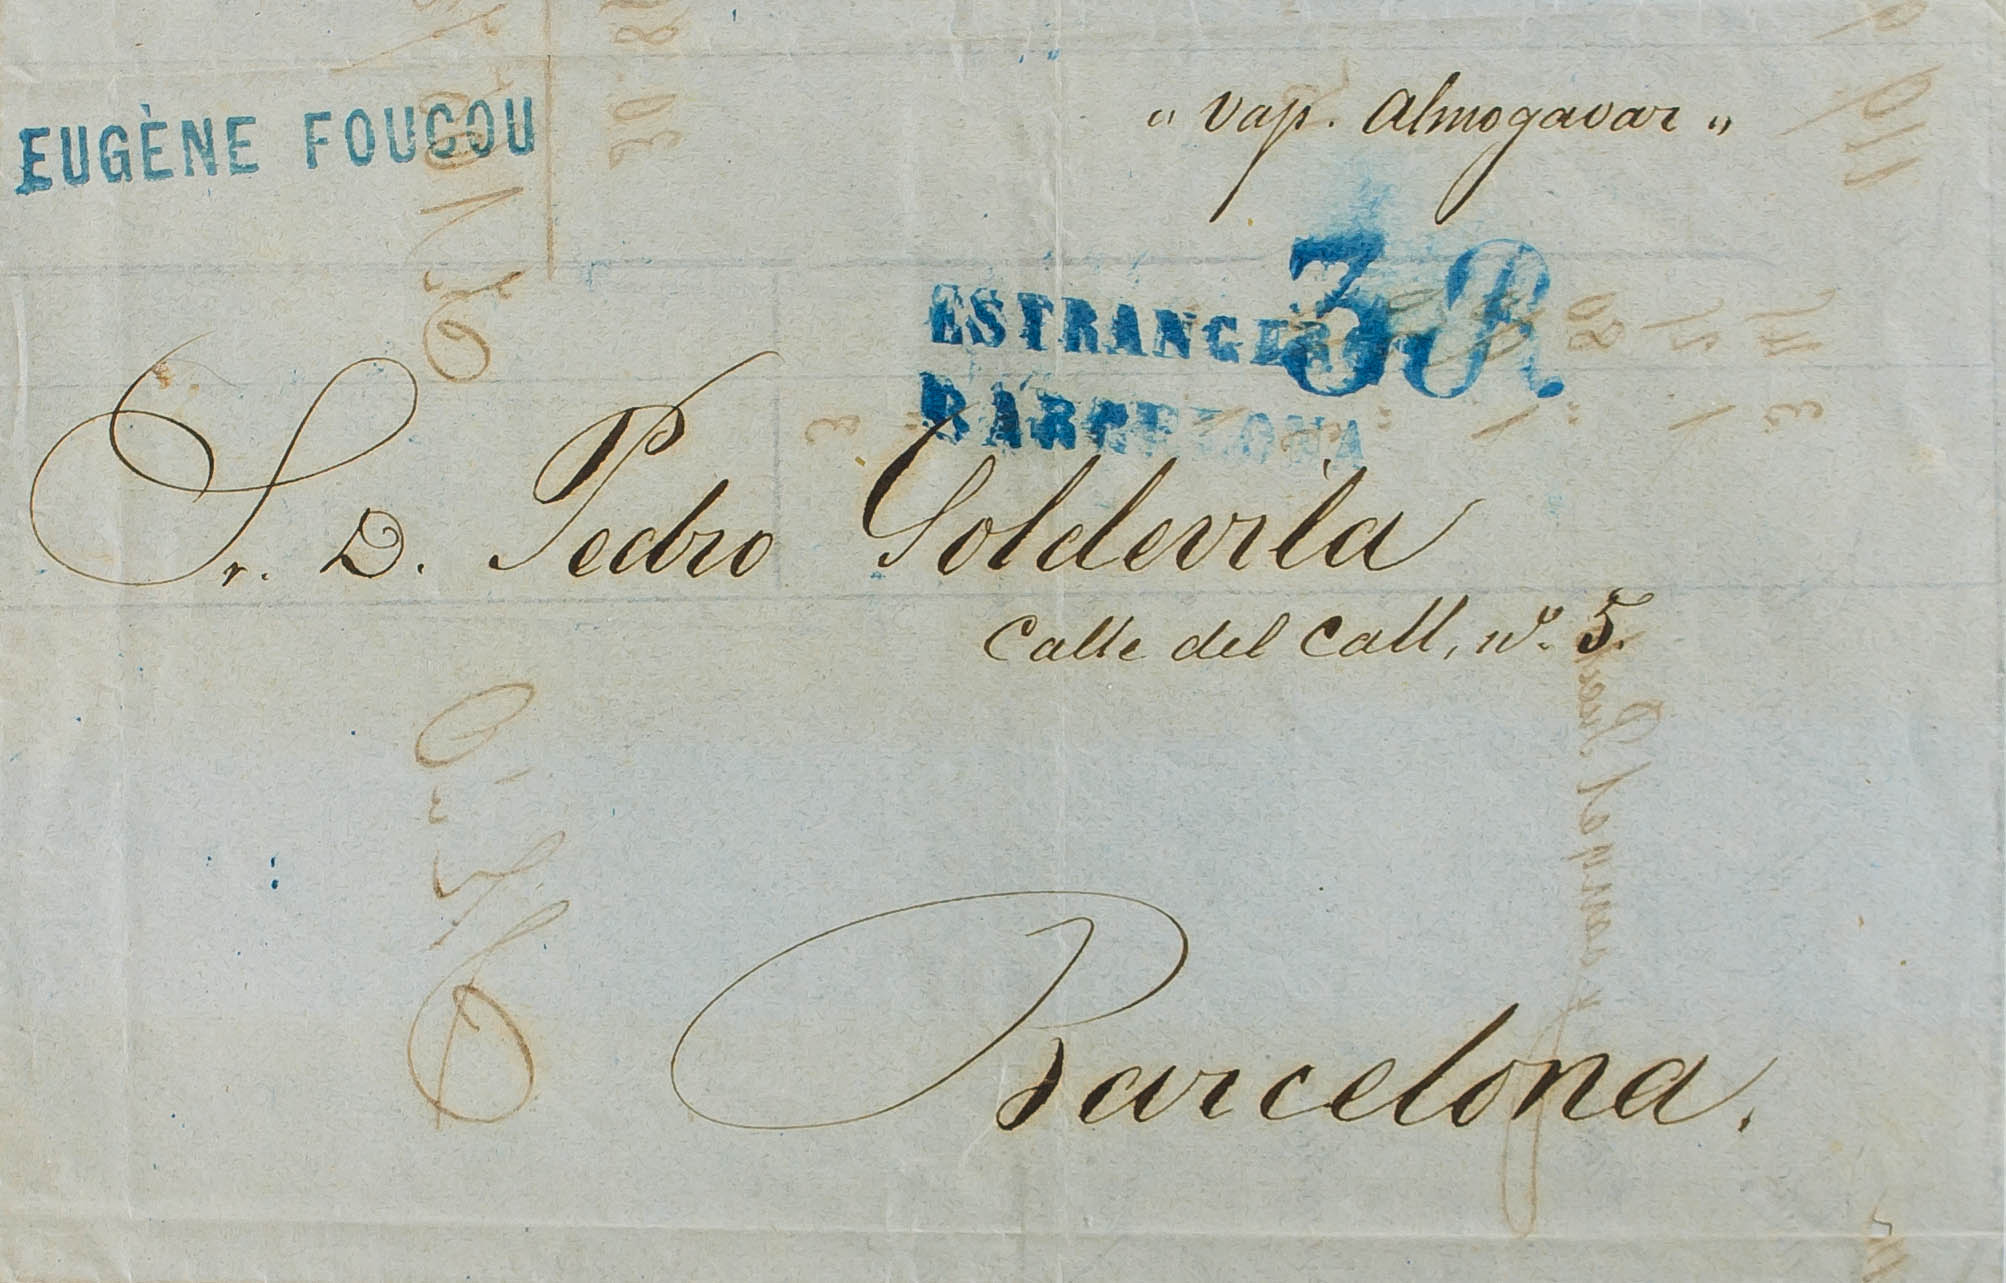 EUGÈNE FOUCOU
"vap. Almogavar"
3R.
ESTRANGERO
BARCELONA
Sr. D. Pedro Soldevila
Calle del Call, nº. 5.
Barcelona.